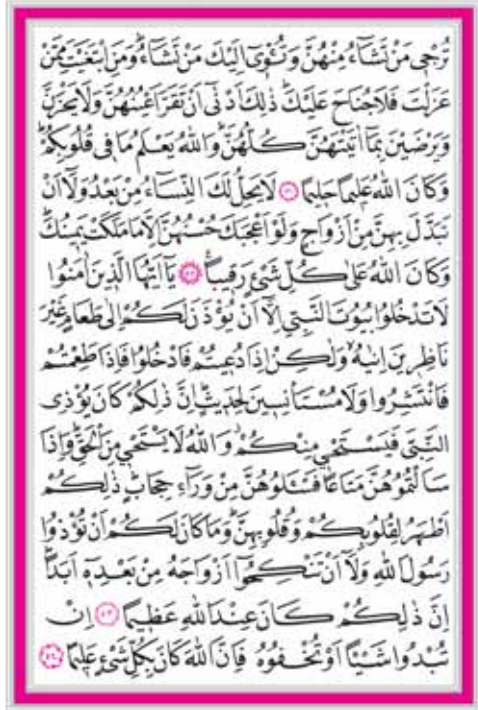 تُرْجِي مَنْ تَشَاءُ مِنْهُنَّ وَتُؤْوِي اِلَيْكَ مَنْ تَشَاءُ وَمَنِ ابْتَغَيْتَ مِمَّنْ
عَزَلْتَ فَلَا جُنَاحَ عَلَيْكَ ذٰلِكَ اَدْنٰى اَنْ تَقَرَّ اَعْيُنُهُنَّ وَلَا يَحْزَنَّ
وَيَرْضَيْنَ بِمَا اٰتَيْتَهُنَّ كُلُّهُنَّ وَاللّٰهُ يَعْلَمُ مَا فِي قُلُوبِكُمْ
وَكَانَ اللّٰهُ عَلِيمًا حَلِيمًا ﴿٥١﴾ لَا يَحِلُّ لَكَ النِّسَاءُ مِنْ بَعْدُ وَلَا اَنْ
تَبَدَّلَ بِهِنَّ مِنْ اَزْوَاجٍ وَلَوْ اَعْجَبَكَ حُسْنُهُنَّ اِلَّا مَا مَلَكَتْ يَمِينُكَ
وَكَانَ اللّٰهُ عَلٰى كُلِّ شَيْءٍ رَقِيبًا ﴿٥٢﴾ يَا اَيُّهَا الَّذِينَ اٰمَنُوا
لَا تَدْخُلُوا بُيُوتَ النَّبِيِّ اِلَّا اَنْ يُؤْذَنَ لَكُمْ اِلٰى طَعَامٍ غَيْرَ
نَاظِرِينَ اِنٰيهُ وَلٰكِنْ اِذَا دُعِيتُمْ فَادْخُلُوا فَاِذَا طَعِمْتُمْ
فَانْتَشِرُوا وَلَا مُسْتَأْنِسِينَ لِحَدِيثٍ اِنَّ ذٰلِكُمْ كَانَ يُؤْذِي
النَّبِيَّ فَيَسْتَحْيِ مِنْكُمْ وَاللّٰهُ لَا يَسْتَحْيِ مِنَ الْحَقِّ وَاِذَا
سَاَلْتُمُوهُنَّ مَتَاعًا فَسْـَٔلُوهُنَّ مِنْ وَرَاءِ حِجَابٍ ذٰلِكُمْ
اَطْهَرُ لِقُلُوبِكُمْ وَقُلُوبِهِنَّ وَمَا كَانَ لَكُمْ اَنْ تُؤْذُوا
رَسُولَ اللّٰهِ وَلَا اَنْ تَنْكِحُوا اَزْوَاجَهُ مِنْ بَعْدِهِ اَبَدًا
اِنَّ ذٰلِكُمْ كَانَ عِنْدَ اللّٰهِ عَظِيمًا ﴿٥٣﴾ اِنْ
تُبْدُوا شَيْـًٔا اَوْ تُخْفُوهُ فَاِنَّ اللّٰهَ كَانَ بِكُلِّ شَيْءٍ عَلِيمًا ﴿٥٤﴾